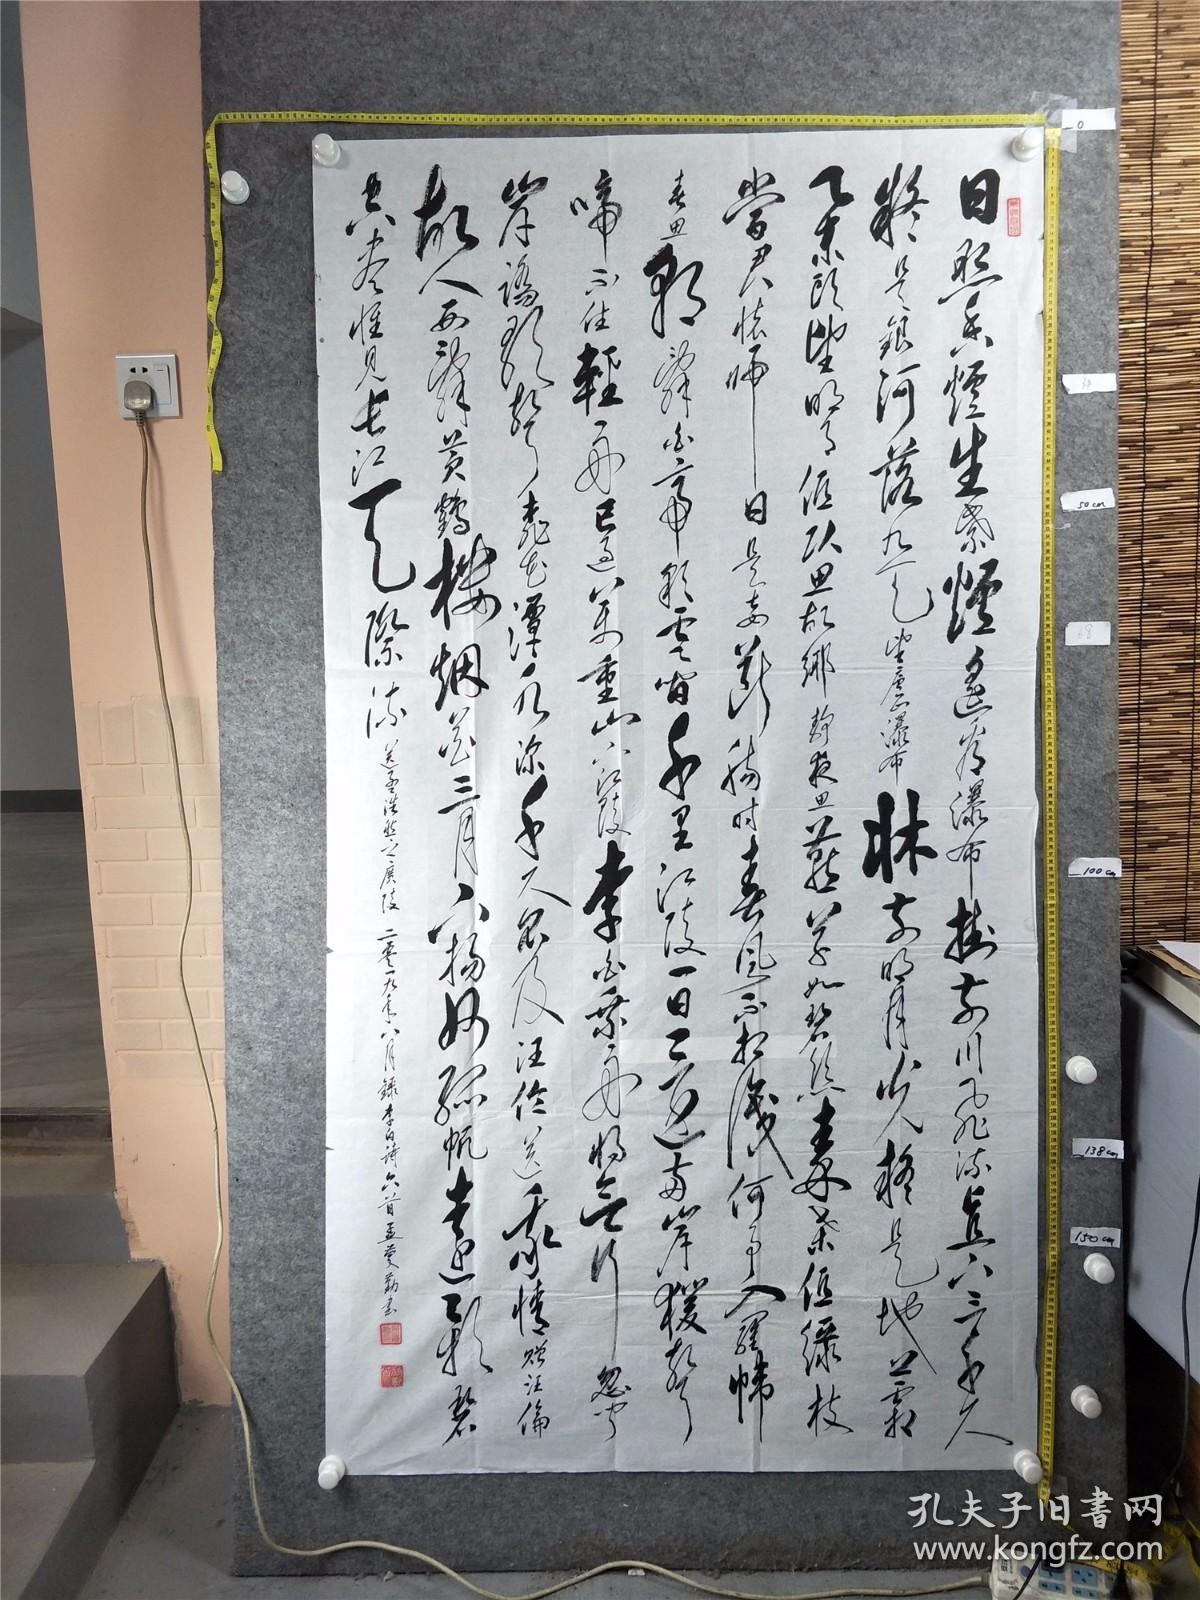 日照香炉生紫烟遥看瀑布挂前川飞流直下三千尺
疑是银河落九天 望庐山瀑布 床前明月光疑是地上霜
举头望明月低头思故乡 静夜思 燕草如碧丝秦桑低绿枝
当君怀归日是妾断肠时春风不相识何事入罗帏
春思 朝辞白帝彩云间千里江陵一日还两岸猿声
啼不住轻舟已过万重山 下江陵 李白乘舟将欲行忽闻
岸上踏歌声桃花潭水深千尺不及汪伦送我情 赠汪伦
故人西辞黄鹤楼烟花三月下扬州孤帆远影碧
空尽惟见长江天际流 送孟浩然之广陵 二零一九年八月録李白诗六首孟
0
50cm
68
100cm
138cm
150cm
孔夫子旧书网
www.kongfz.com